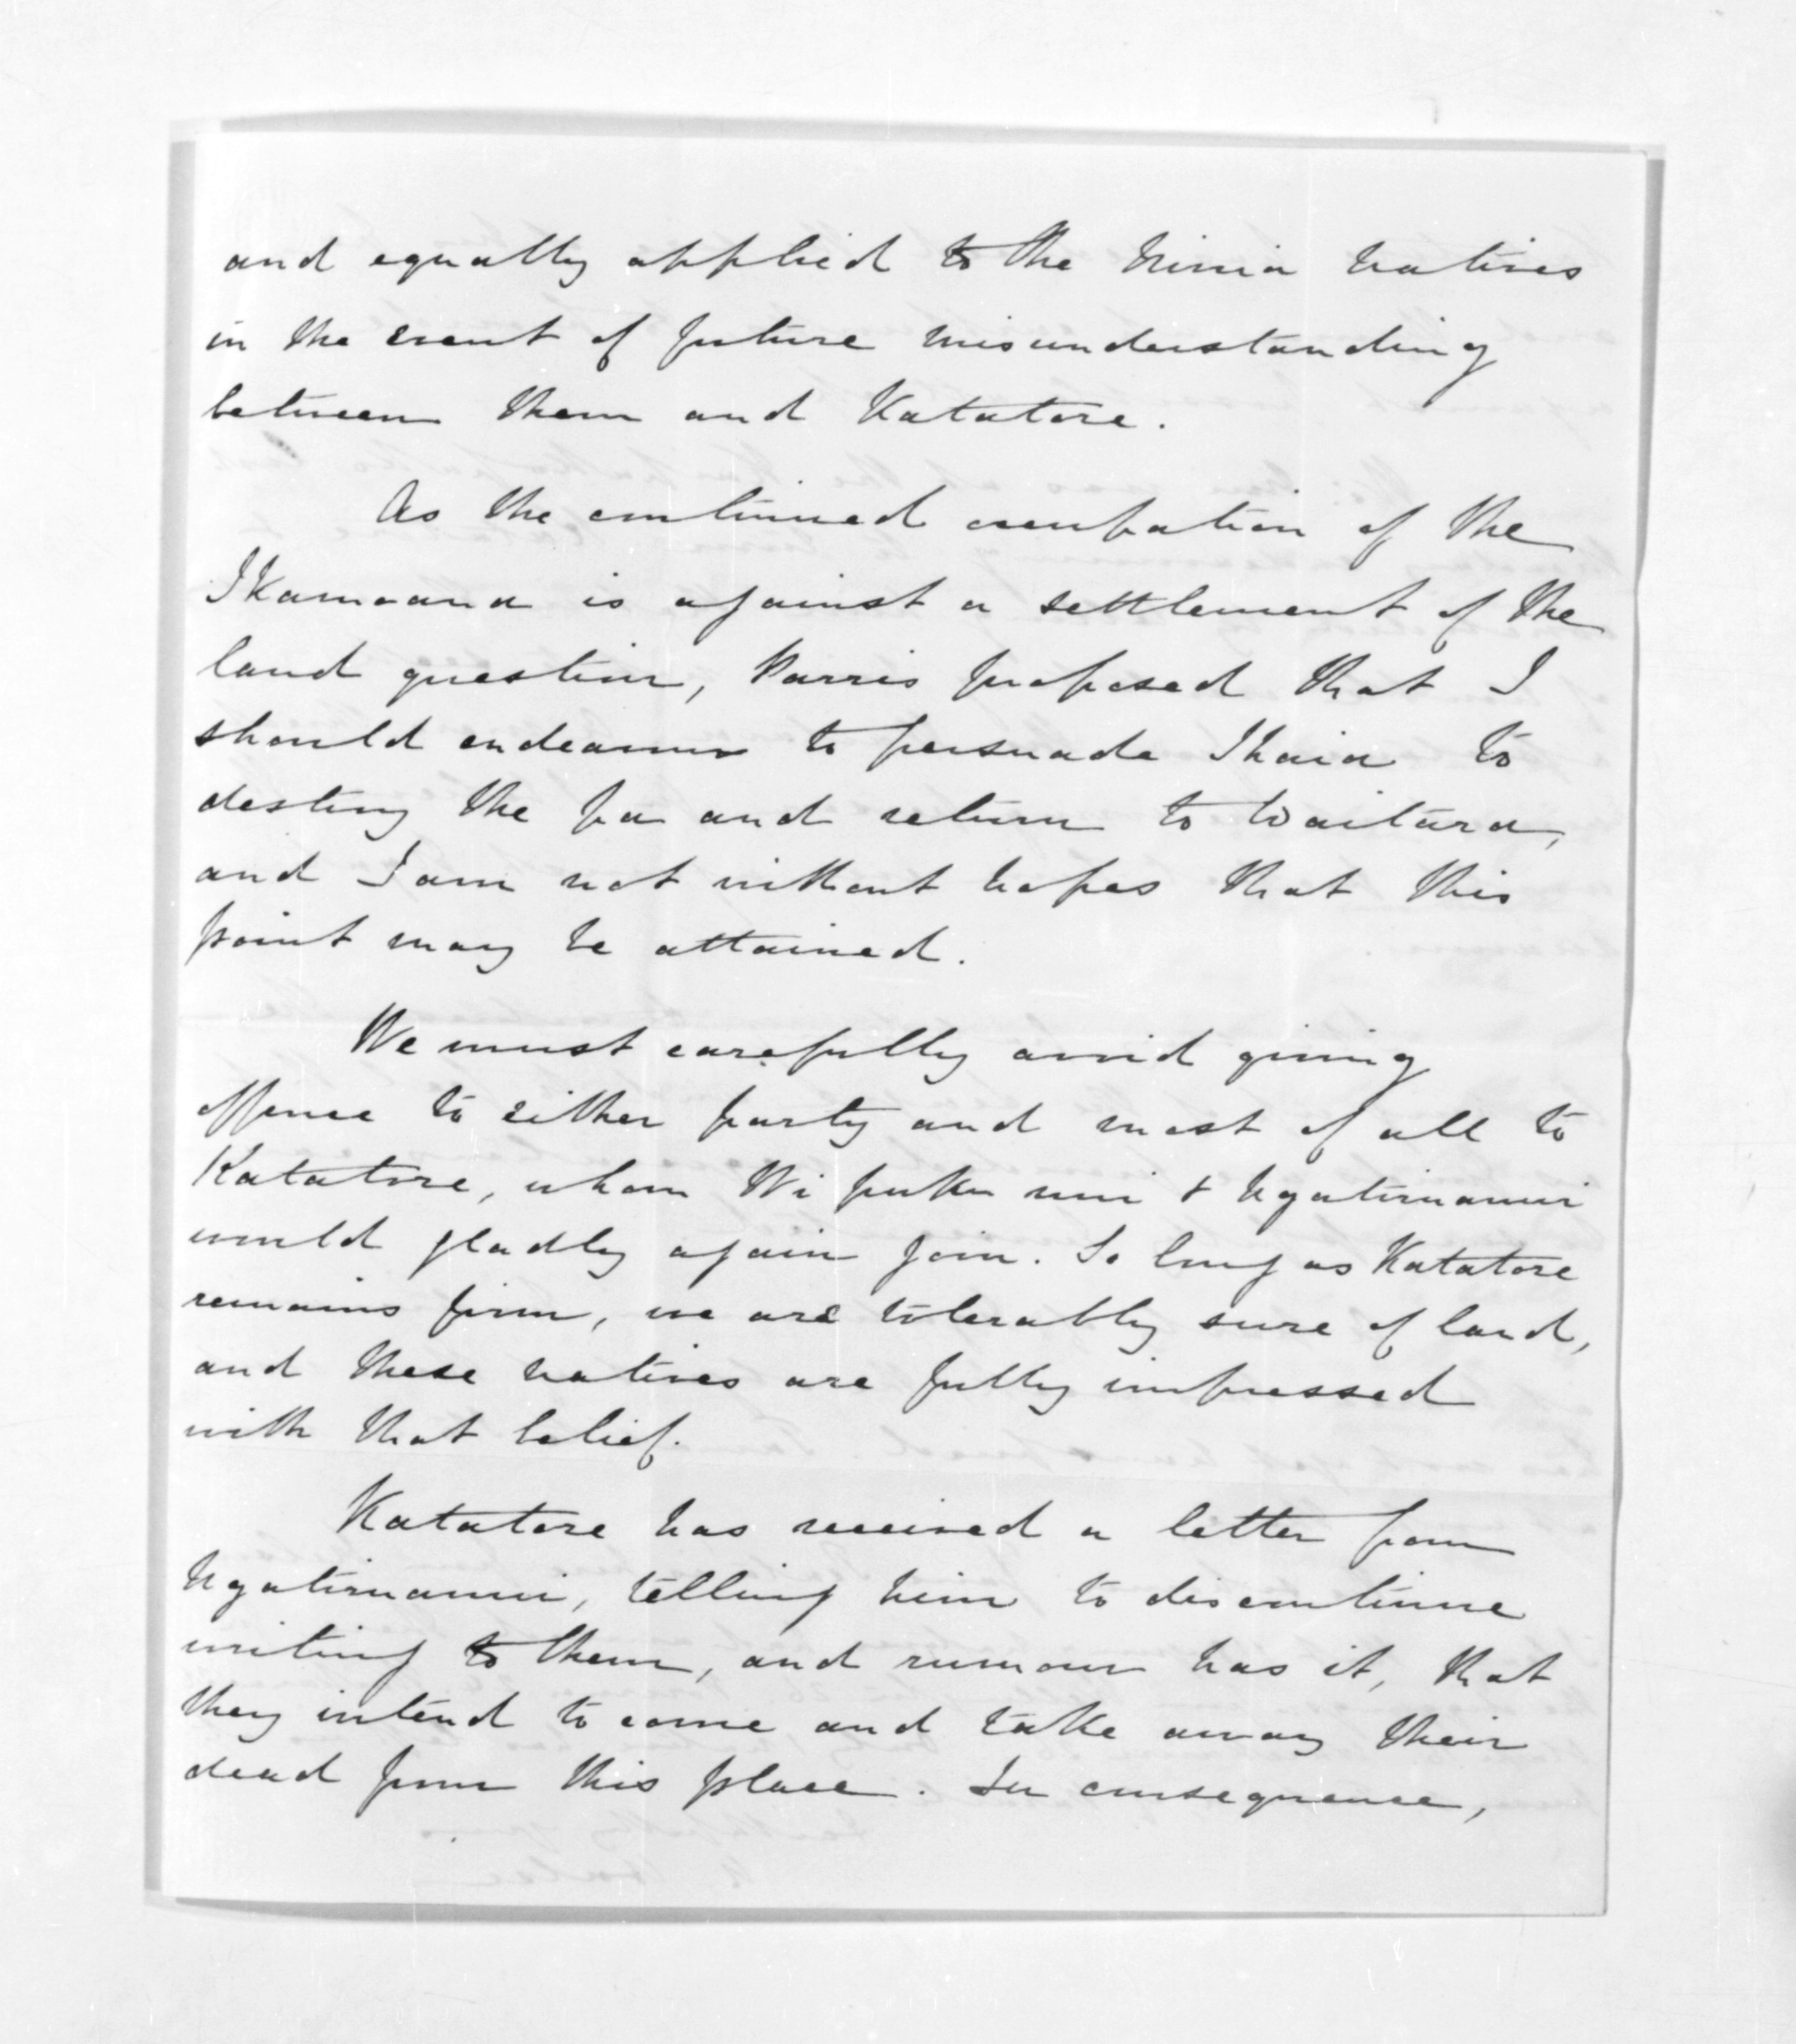 and equally applied to the Ninia natives
in the event of future misunderstanding
between them and Katatore.
As the continued occupation of the
Ikamoana is against a settlement of the
land question, Parris proposed that I
should endeavour to persuade Ihaia to
destroy the pa and return to Waitara,
and I am not without hopes that this
point may be attained.
We must carefully avoid giving
offence to either party and most of all to
Katatore, whom Wi puke nui & Ngatiruanui
would gladly again join. So long as Katatore
remains firm, we are tolerably sure of land,
and these natives are fully impressed
with that belief.
Katatore has received a letter from
Ngatiruanui, telling him to discontinue
writing to them, and rumour has it, that
they intend to come and take away their
dead from this place. In consequence,